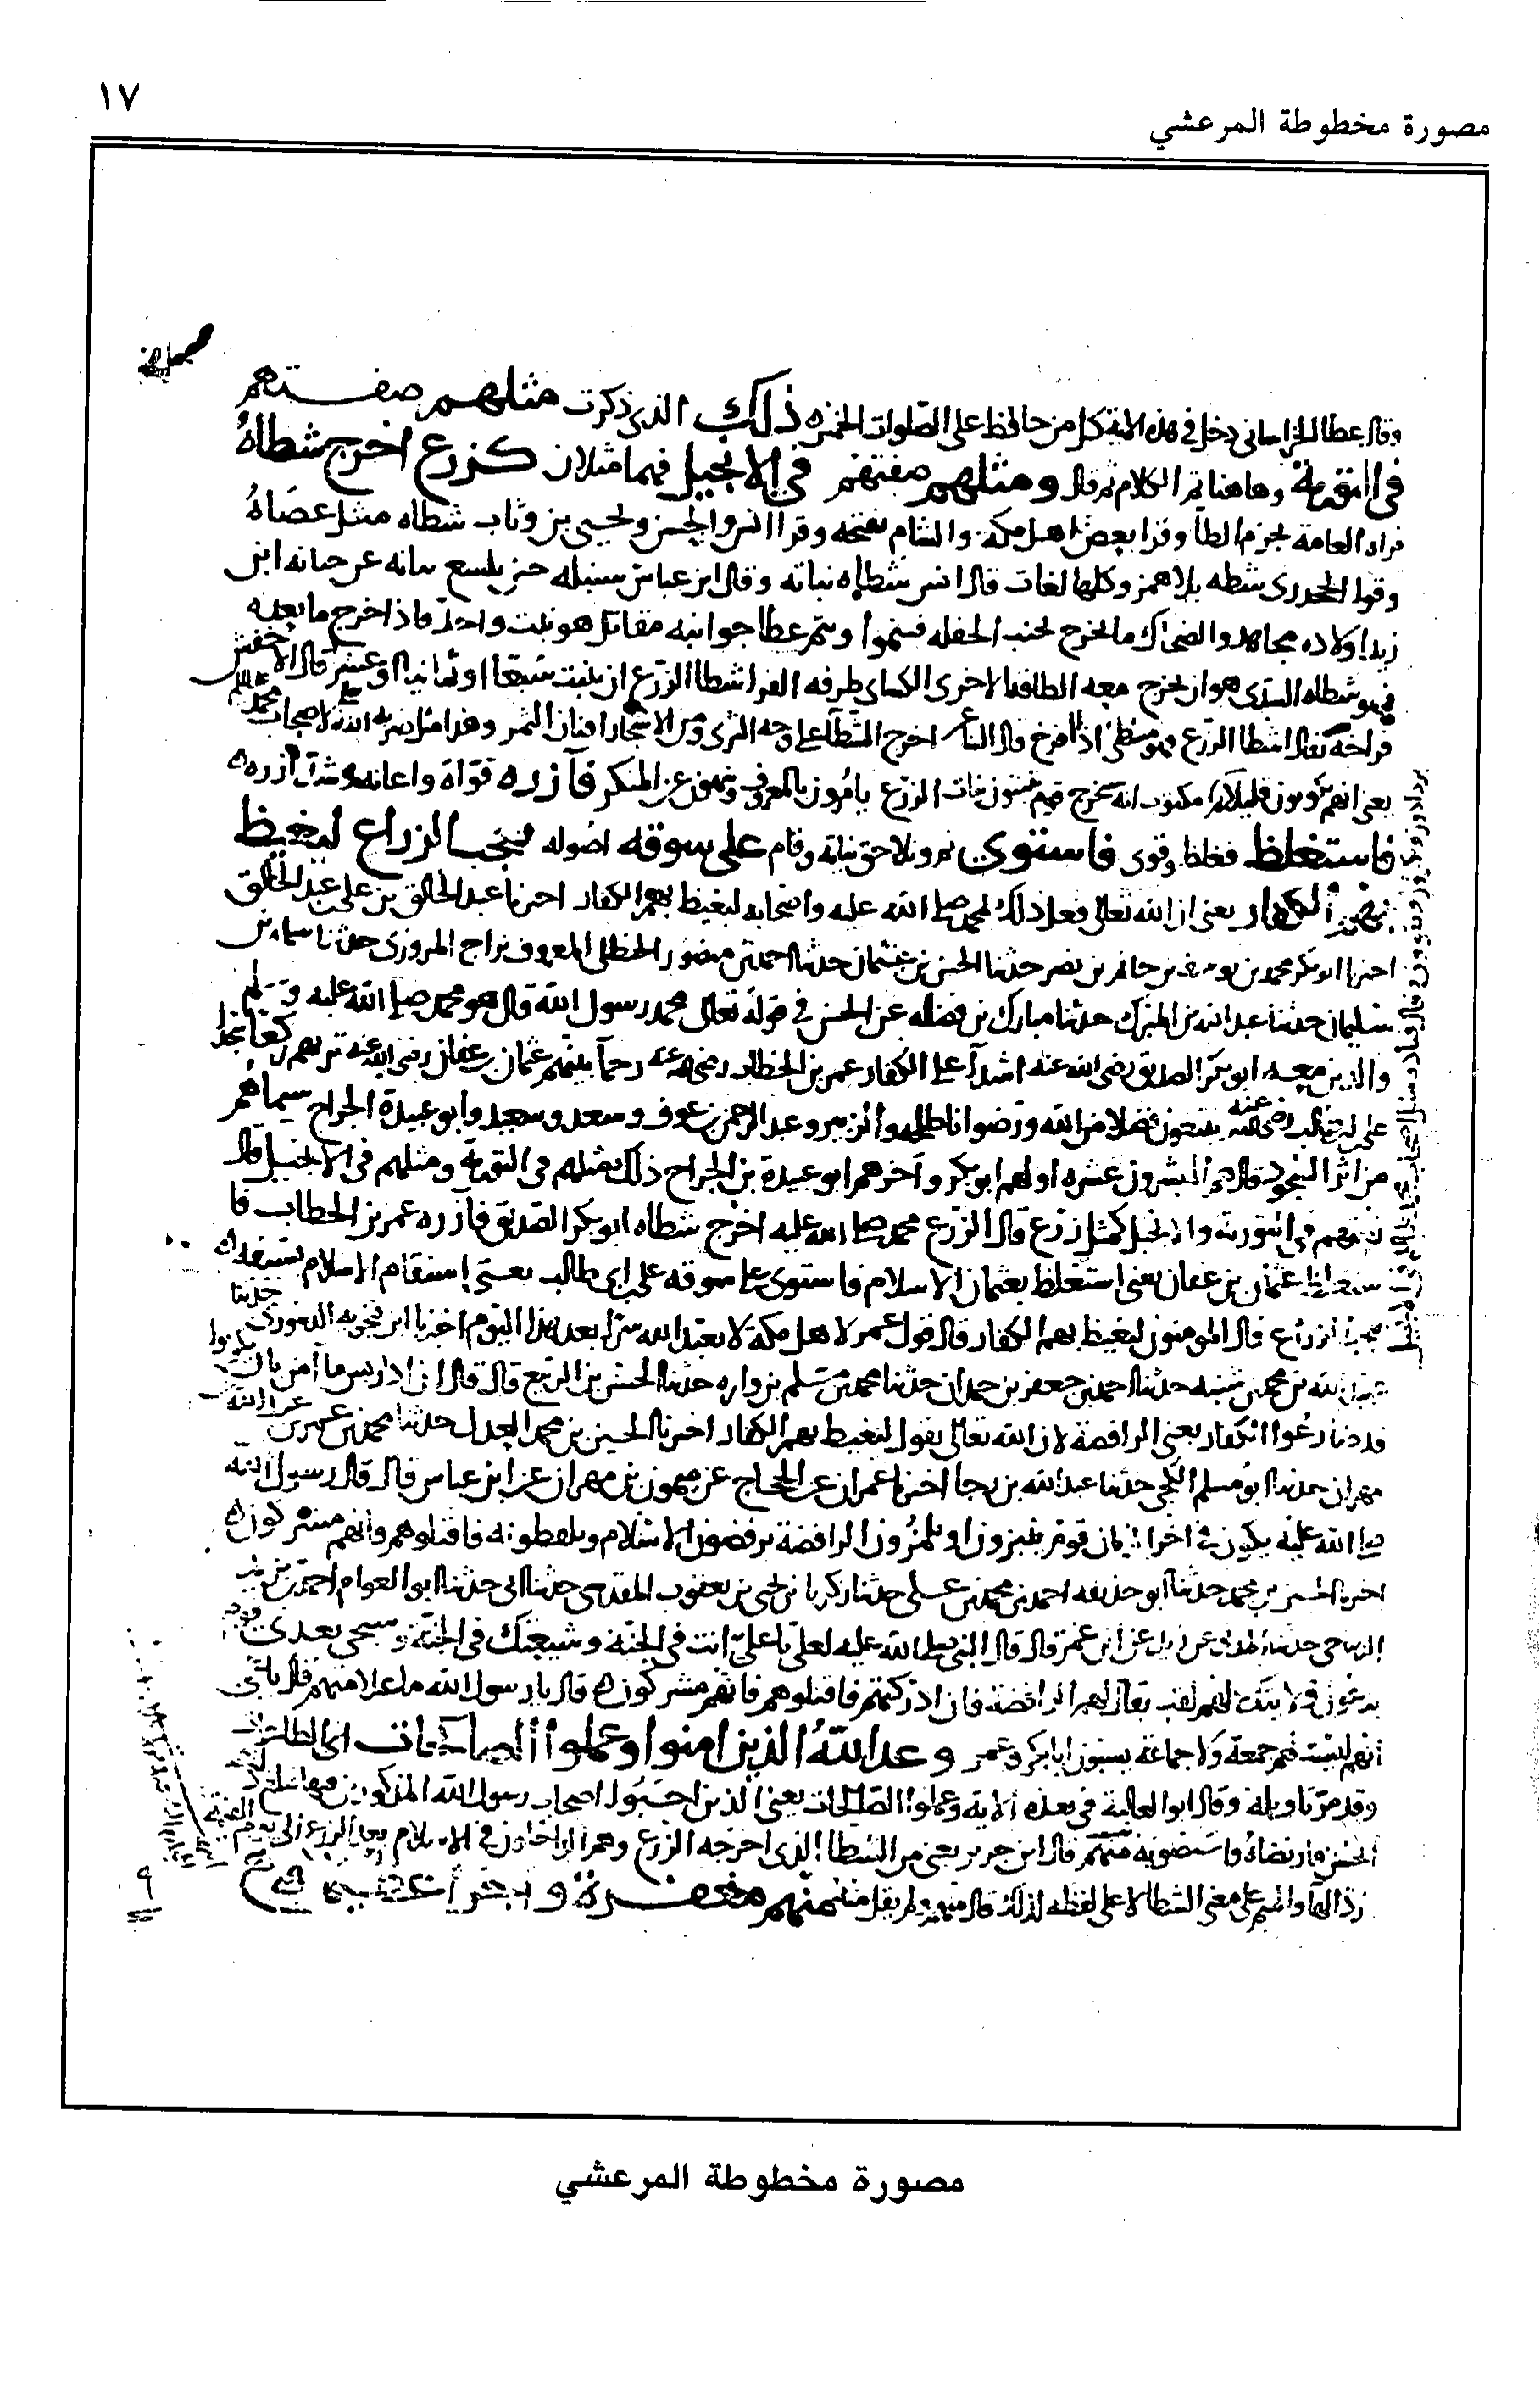 ١٧
مصورة مخطوطة المرعشي
وقال عطا الخراساني دخل في هذه الاية كل من حافظ على الصلوات الخمس ذلك الذي ذكرت مثلهم صفتهم
في التورية وهاهنا تم الكلام ثم قال ومثلهم صفتهم في الانجيل فهما مثلان كزرع اخرج شطاهُ
قراه العامة بجزم الطا وقرا بعض اهل مكة والشام بفتحه وقرا انس والحسن ويحيى بن وثاب شطاه مثل عصَاهُ
وقرا الجحدري شطه بلا همز وكلها لغات قال انس شطاه نباته وقال ابن عباس سنبله حين
زيد اولاده مجاهد والضحاك ما يخرج بجنب الحقله فينموا ويتم عطا جوانبه مقاتل هو نبت واحد فاذا اخرج ما بعده
فهو شطاه السدي هو ان يخرج معه الطاقة الاخرى الكساي طرفه الفرا شطا الزرع ان ينبت سَبعًا او ثمانيا او عشرا قال الاخفش
فراخه يقال اشطا الزرع فهو مشطي اذا افرخ قال الشاعر اخرج الشطا على وجه الثرى ومن الاشجار افنان الثمر وهذا مثل ضربه الله لاصحاب محمد
يعني انهم يكونون قليلا مكتوب انه يخرج قوم ينبتون نبات الزرع يامُرون بالمعروف وينهون عن المنكر فآزره قوّاه واعانه وشد ازره
فاستغلظ فغلظ وقوى فاستوى تم وتلاحق نباته وقام على سوقه اصُوله يعجب الزراع ليغيظ
بهم الكفار يعني ان الله تعالى فعل ذلك لمحمد صلى الله عليه واصحابه ليغيظ بهم الكفار اخبرنا عبد الخالق بن علي بن عبد الخالق
اخبرنا ابو بكر محمد بن يوسف بن حاتم بن نصر حدثنا الحسن بن عثمان حدثنا احمد بن منصور الحنظلي المعروف بزاج المروزي حدثنا سلمة بن
سليمان حدثنا عبد الله بن المبرك حدثنا مبارك بن فضله عن الحسن في قوله تعالى محمد رسول الله قال هو محمد صلى الله عليه وسلم
والذين معه ابو بكر الصديق رضي الله عنه اشدآ على الكفار عمر بن الخطاب رضي الله عنه رحمآ بينهم عثمان بن عفان رضي الله عنه تريهم ركعا سجدا
علي بن ابي طالب رضي الله عنه يبتغون فضلا من الله ورضوانا طلحه والزبير وعبد الرحمن بن عوف وسعد وسعيد وابو عبيدة الجراح سيماهم
من اثر السجود قال هم المبشرون عشره اولهم ابو بكر وآخرهم ابو عبيدة بن الجراح ذلك مثلهم في التورية ومثلهم في الانجيل قال
نعتهم في التورية والانجيل كمثل زرع قال الزرع محمد صلى الله عليه اخرج شطاه ابو بكر الصديق فآزره عمر بن الخطاب فا
ستغلظ عثمان بن عفان يعني استغلظ بعثمان الاسلام فاستوى على سوقه علي بن ابي طالب يعني استقام الاسلام بسيفه
يعجب الزراع قال المومنون ليغيظ بهم الكفار قال قول عمر لاهل مكة لا يعبد الله سرا بعد هذا اليوم اخبرنا ابن فنجويه الدينوري حدثنا
عبد الله بن محمد بن شنبه حدثنا احمد بن جعفر بن حمدان حدثنا محمد بن مسلم بن واره حدثنا الحسن بن الربيع قال قال ابن ادريس ما آمن بان يكونوا
قد ضارعُوا الكفار يعني الرافضة لان الله تعالى يقول ليغيظ بهم الكفار اخبرنا الحسين بن محمد العدل حدثنا محمد بن عمر بن عبد الله
مهران حدثنا ابو مسلم الكجي حدثنا عبد الله بن رجا اخبرنا عمران عن الحجاج عن ميمون بن مهران عن ابن عباس قال قال رسول الله
صلى الله عليه يكون في اخر الزمان قوم ينبزون او يُلمزُون الرافضة يرفضون الاسلام ويلفظونه فاقتلوهم فانهم مشركون
اخبرنا الحسين بن محمد حدثنا ابو حذيفه احمد بن محمد بن علي حدثنا زكريا بن يحيى بن يعقوب المقدسي حدثنا ابي حدثنا ابو العوام احمد بن يزيد
الرياحي حدثنا عن ابن عمر قال قال النبي صلى الله عليه لعلي يا علي انت في الجنة وشيعتك في الجنة وسيجي بعدي قوم
يدعون ولايتك لهم لقب يقال لهم الرافضة فان ادركتهم فاقتلوهم فانهم مشركون قال يارسول الله ما علامتهم قال يا علي
انهم ليست لهم جمعة ولا جماعة يسبون ابا بكر وعمر وعد الله الذين امنوا وعملوا الصالحات
وقد مر تاويله وقال ابو العالية في هذه الاية وعملوا الصالحات يعني الذين احَبّوا اصحاب رسول الله المذكورين فيها
الحسن فارتضاهُ واستصوبه منهم قال ابن جرير يعني من الشطا الذي اخرجه الزرع وهم الداخلون في الاسلام بعد الزرع الى يوم القيمة
ردّ الها والميم على معنى الشطا لا على لفظه لذلك قال منهم ولم يقل منه منهم مغفرة واجرا عظيما
٩
مصورة مخطوطة المرعشي